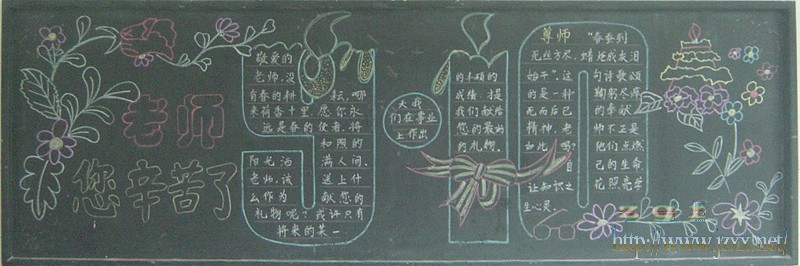 老师
您辛苦了
敬爱的
老师,没
有春的耕耘,哪
来荷香十里,愿你永
远是春的使者,将
和照的
阳光洒满人间。
老师,该送上什
么作为献您的
礼物呢?或许只有
将来的某一
天我
们在事业
上作出
的丰硕的
成绩,才是
我们献给
您的最好
的礼物。
尊师
"春蚕到
死丝方尽,蜡炬成灰泪
始干",这句诗歌颂
的是一种鞠躬尽瘁
死而后已的奉献
精神,老师不正是
如此吗?他们点燃
自己的生命
让知识之花照亮学
生心灵。
http://www.jzxx.net/